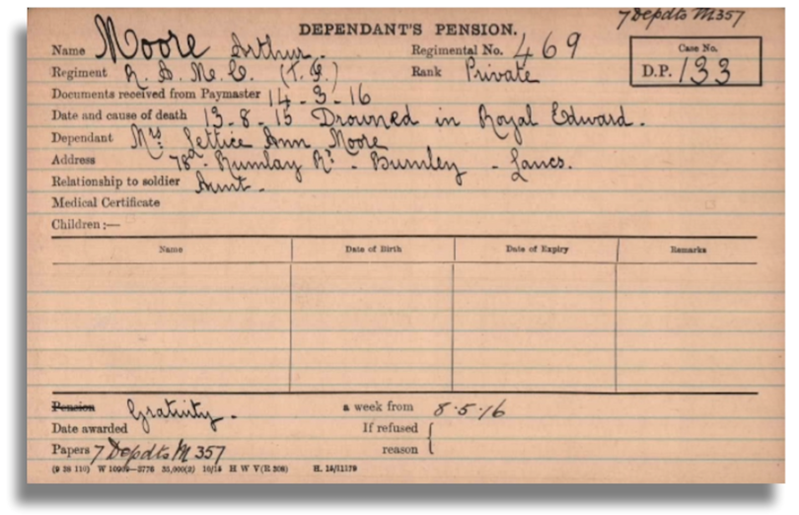 7 Depdts M357
DEPENDANT'S PENSION.
Name Moore Arthur. Regimental No. 469 Case No.
Regiment R. A. M. C. (T. F.) Rank Private D.P. 133
Documents received from Paymaster 14-3-16
Date and cause of death 13-8-15 Drowned in Royal Edward.
Dependant Mrs Lettice Ann Moore
Address 78a Rumlay Rd - Burnley - Lancs.
Relationship to soldier Aunt.
Medical Certificate
Children:—
Name Date of Birth Date of Expiry Remarks
Pension Gratuity. a week from 8.5.16
Date awarded If refused
Papers 7 Depdts M 357 reason
(9 38 110) W 10909—3776 35,000(2) 10/15 H W V(R 308) H. 15/11179